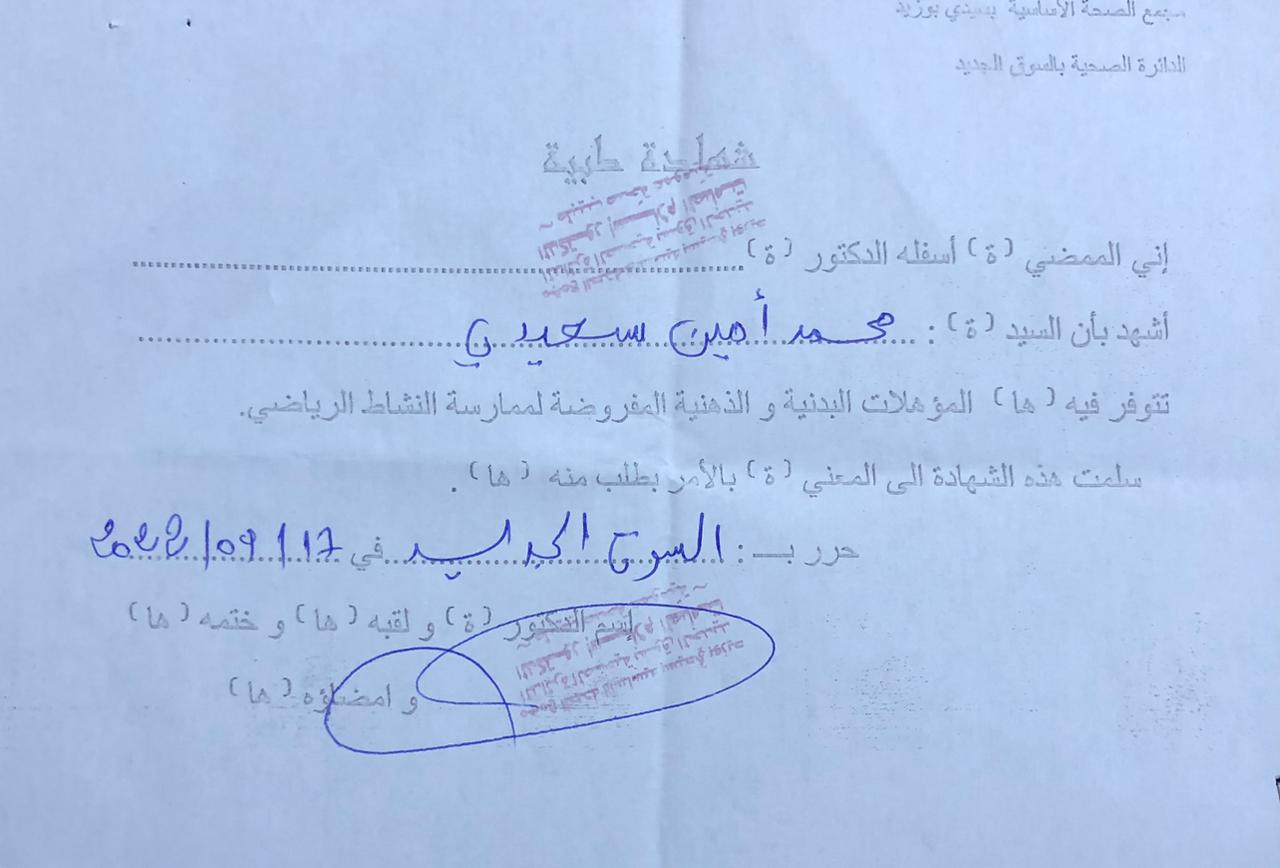 مجمع الصحة الأساسية بسيدي بوزيد
الدائرة الصحية بالسوق الجديد
شهادة طبية
إني الممضي (ة) أسفله الدكتور (ة)
أشهد بأن السيد (ة) : محمد أمين سعيدي
تتوفر فيه (ها) المؤهلات البدنية و الذهنية المفروضة لممارسة النشاط الرياضي.
سلمت هذه الشهادة الى المعني (ة) بالأمر بطلب منه (ها) .
حرر بـ : السوق الجديد في 17/09/2022
إسم الدكتور (ة) و لقبه (ها) و ختمه (ها)
و امضاؤه (ها)